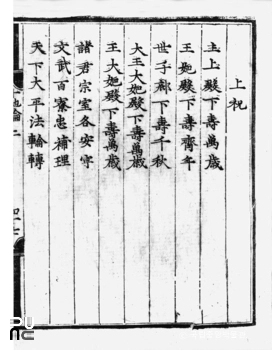 上祝
主上殿下壽萬歲
王妃殿下壽齊年
世子邸下壽千秋
大王大妃殿下壽萬歲
王大妃殿下壽萬歲
諸君宗室各安寧
文武百寮忠補理
天下大平法輪轉